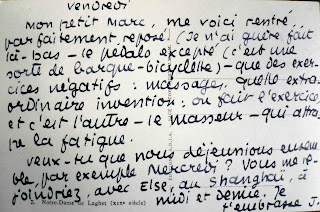 vendredi
mon petit Marc, me voici rentré
parfaitement reposé (je n'ai guère fait
là-bas — le pédalo excepté (c'est une
sorte de barque-bicyclette) — que des exer-
cices négatifs : massages. Quelle extra-
ordinaire invention : on fait l'exercice
et c'est l'autre — le masseur — qui attra-
pe la fatigue.
veux-tu que nous déjeunions ensem-
ble, par exemple Mercredi ? Vous me re-
joindriez, avec Else, au Shanghaï, à
midi et demie. Je
t'embrasse J.
2. Notre-Dame de Laghet (XIIIe siècle)